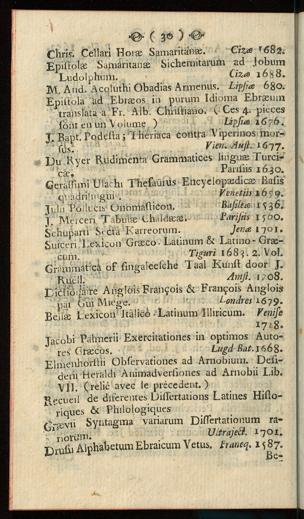 ( 30 )
Chris. Cellari Horæ Samaritanæ. Cizæ 1682.
Epistolæ Samaritanæ Sichemitarum ad Jobum
Ludolphum. Cizæ 1688.
M. And. Acoluthi Obadias Armenus. Lipsiæ 680.
Epistola ad Ebræos in purum Idioma Ebræum
translata a Fr. Alb. Christiano. (Ces 4. pieces
sont en un Volume) Lipsiæ 1676.
J. Bapt. Podesta; Theriaca contra Viperinos mor-
sus. Vien. Aust. 1677.
Du Ryer Rudimenta Grammatices linguæ Turci-
cæ. Parisiis 1630.
Gerassimi Vlachi Thesaurus Encyclopædicæ Basis
quadrilinguis. Venetiis 1659.
Julii Pollucis Onomasticon. Basileæ 1536.
J. Merceri Tabulæ Chaldææ. Parisiis 1560.
Schuparti Secta Karreorum. Jenæ 1701.
Suiceri Lexicon Græco-Latinum & Latino-Græ-
cum. Tiguri 1683. 2. Vol.
Grammatica of singaleesche Taal Kunst door J.
Ruell. Amst. 1708.
Dictionaire Anglois François & François Anglois
par Gui Miege. Londres 1679.
Bellæ Lexicon Italico-Latinum Illiricum. Venise
1728.
Jacobi Palmerii Exercitationes in optimos Auto-
res Græcos. Lugd-Bat. 1668.
Elmenhorstii Observationes ad Arnobium. Desi-
derii Heraldi Animadversiones ad Arnobii Lib.
VII. (relié avec le précedent.)
Recueil de diferentes Dissertations Latines Histo-
riques & Philologiques
Grævii Syntagma variarum Dissertationum ra-
riorum. Ultraject. 1701.
Drusi Alphabetum Ebraicum Vetus. Franeq. 1587.
Be-